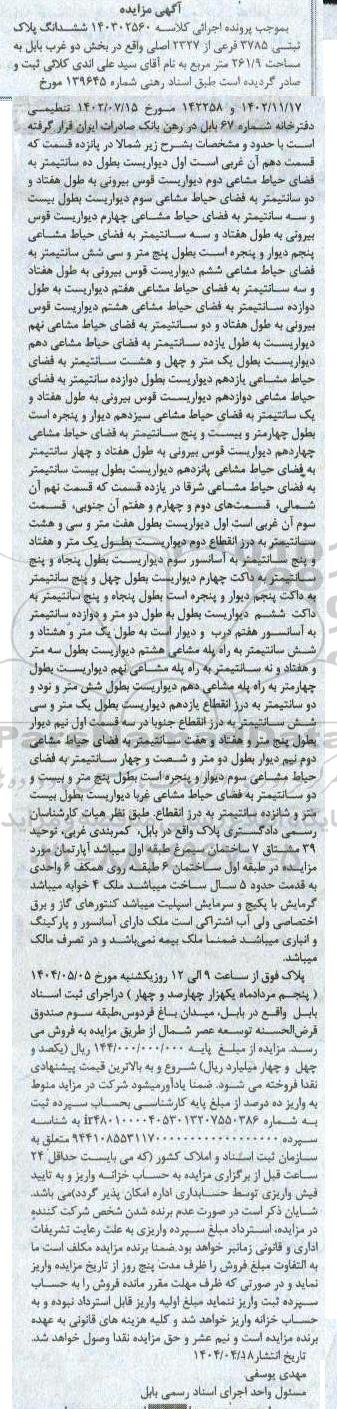 آگهی مزایده
بموجب پرونده اجرائی کلاسه ۱۴۰۳۰۲۵۶۰ ششدانگ پلاک
ثبتی ۳۷۸۵ فرعی از ۲۳۲۷ اصلی واقع در بخش دو غرب بابل به
مساحت ۲۶۱/۹ متر مربع به نام آقای سید علی اندی کلائی ثبت و
صادر گردیده است طبق اسناد رهنی شماره ۱۳۹۶۴۵ مورخ
۱۴۰۲/۱۱/۱۷ و ۱۴۲۲۵۸ مورخ ۱۴۰۲/۰۷/۱۵ تنظیمی
دفترخانه شماره ۶۷ بابل در رهن بانک صادرات ایران قرار گرفته
است با حدود و مشخصات بشرح زیر شمالا در پانزده قسمت که
قسمت دهم آن غربی است اول دیواریست بطول ده سانتیمتر به
فضای حیاط مشاعی دوم دیواریست قوس بیرونی به طول هفتاد و
دو سانتیمتر به فضای حیاط مشاعی سوم دیواریست بطول بیست
و سه سانتیمتر به فضای حیاط مشاعی چهارم دیواریست قوس
بیرونی به طول هفتاد و سه سانتیمتر به فضای حیاط مشاعی
پنجم دیوار و پنجره است بطول پنج متر و سی شش سانتیمتر به
فضای حیاط مشاعی ششم دیواریست قوس بیرونی به طول هفتاد
و سه سانتیمتر به فضای حیاط مشاعی هفتم دیواریست به طول
دوازده سانتیمتر به فضای حیاط مشاعی هشتم دیواریست قوس
بیرونی به طول هفتاد و دو سانتیمتر به فضای حیاط مشاعی نهم
دیواریست به طول یازده سانتیمتر به فضای حیاط مشاعی دهم
دیواریست بطول یک متر و چهل و هشت سانتیمتر به فضای
حیاط مشاعی یازدهم دیواریست بطول دوازده سانتیمتر به فضای
حیاط مشاعی دوازدهم دیواریست قوس بیرونی به طول هفتاد و
یک سانتیمتر به فضای حیاط مشاعی سیزدهم دیوار و پنجره است
بطول چهارمتر و بیست و پنج سانتیمتر به فضای حیاط مشاعی
چهاردهم دیواریست قوس بیرونی به طول هفتاد و چهار سانتیمتر
به فضای حیاط مشاعی پانزدهم دیواریست بطول بیست سانتیمتر
به فضای حیاط مشاعی شرقا در یازده قسمت که قسمت نهم آن
شمالی، قسمت‌های دوم و چهارم و هفتم آن جنوبی، قسمت
سوم آن غربی است اول دیواریست بطول هفت متر و سی و هشت
سانتیمتر به درز انقطاع دوم دیواریست بطول یک متر و هفتاد
و پنج سانتیمتر به آسانسور سوم دیواریست بطول پنجاه و پنج
سانتیمتر به داکت چهارم دیواریست بطول چهل و پنج سانتیمتر
به داکت پنجم دیوار و پنجره است بطول پنجاه و پنج سانتیمتر به
داکت ششم دیواریست بطول به طول دو متر و دوازده سانتیمتر
به آسانسور هفتم درب و دیوار است به طول یک متر و هشتاد و
شش سانتیمتر به راه پله مشاعی هشتم دیواریست بطول سه متر
و هفتاد و نه سانتیمتر به راه پله مشاعی نهم دیواریست بطول
چهارمتر به راه پله مشاعی دهم دیواریست بطول شش متر و نود و
دو سانتیمتر به درز انقطاع یازدهم دیواریست بطول یک متر و سی
شش سانتیمتر به درز انقطاع جنوبا در سه قسمت اول نیم دیوار
بطول پنج متر و هفتاد و هفت سانتیمتر به فضای حیاط مشاعی
دوم نیم دیوار بطول دو متر و شصت و چهار سانتیمتر به فضای
حیاط مشاعی سوم دیوار و پنجره است بطول پنج متر و بیست و
دو سانتیمتر به فضای حیاط مشاعی غربا دیواریست بطول بیست
متر و شانزده سانتیمتر به درز انقطاع. طبق نظر هیات کارشناسان
رسمی دادگستری پلاک واقع در بابل، کمربندی غربی، توحید
۳۹ مشتاق ۷ ساختمان سیمرغ طبقه اول میباشد آپارتمان مورد
مزایده در طبقه اول ساختمان ۶ طبقه روی همکف ۶ واحدی
به قدمت حدود ۵ سال ساخت میباشد ملک ۴ خوابه میباشد
گرمایش با پکیج و سرمایش اسپلیت میباشد کنتورهای گاز و برق
اختصاصی ولی آب اشتراکی است ملک دارای آسانسور و پارکینگ
و انباری میباشد ضمنا ملک بیمه نمی‌باشد و در تصرف مالک
میباشد.
پلاک فوق از ساعت ۹ الی ۱۲ روزیکشنبه مورخ ۱۴۰۴/۰۵/۰۵
( پنجم مردادماه یکهزار چهارصد و چهار ) دراجرای ثبت اسناد
بابل واقع در بابل، میدان باغ فردوس،طبقه سوم صندوق
قرض‌الحسنه توسعه عصر شمال از طریق مزایده به فروش می
رسد. مزایده از مبلغ پایه ۱۴۴/۰۰۰/۰۰۰/۰۰۰ ریال (یکصد و
چهل و چهار میلیارد ریال) شروع و به بالاترین قیمت پیشنهادی
نقدا فروخته می شود. ضمنا یادآورمیشود شرکت در مزاید منوط
به واریز ده درصد از مبلغ پایه کارشناسی بحساب سپرده ثبت
به شماره ir۴۸۰۱۰۰۰۰۴۰۵۳۰۱۳۲۰۷۵۵۰۳۸۶ به شناسه
سپرده متعلق به
سازمان ثبت اسناد و املاک کشور (که می بایست حداقل ۲۴
ساعت قبل از برگزاری مزایده به حساب خزانه واریز و به تایید
فیش واریزی توسط حسابداری اداره امکان پذیر گردد)می باشد.
شایان ذکر است در صورت عدم برنده شدن شخص شرکت کننده
در مزایده، استرداد مبلغ سپرده واریزی به علت رعایت تشریفات
اداری و قانونی زمانبر خواهد بود.ضمنا برنده مزایده مکلف است ما
به التفاوت مبلغ فروش را ظرف مدت پنج روز از تاریخ مزایده واریز
نماید و در صورتی که ظرف مهلت مقرر مانده فروش را به حساب
سپرده ثبت واریز ننماید مبلغ اولیه واریز قابل استرداد نبوده و به
حساب خزانه واریز خواهد شد و کلیه هزینه های قانونی به عهده
برنده مزایده است و نیم عشر و حق مزایده نقدا وصول خواهد شد.
تاریخ انتشار۱۴۰۴/۰۴/۱۸
مهدی یوسفی
مسئول واحد اجرای اسناد رسمی بابل